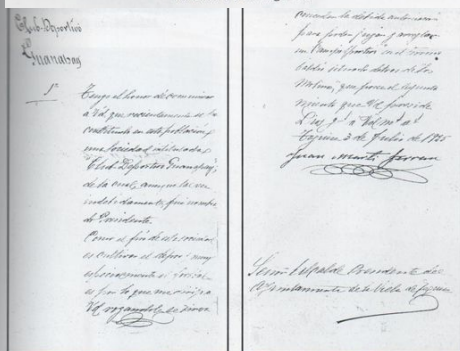 Club Deportivo
Guanarey
1º
Tengo el honor de comunicar
a Vd que recientemente se ha
constituido en esta poblacion
una sociedad intitulada
Club Deportivo Guanarey,
de la cual, aunque
indebidamente fui nombra
do Presidente.
Como el fin de esta sociedad
es cultivar el deporte muy
especialmente el
es por lo que me dirijo a
Vd rogandole se digne
conceder la debida autorizacion
para poder fijar y arreglar
un Campo Sportivo en el terreno
baldio situado detras de los
Molinos,
Dios gue a Vd ms as
3 de Julio de 1925
Juan Marti Ferrer
Señor Alcalde Presidente del
Ayuntamiento de la Villa de